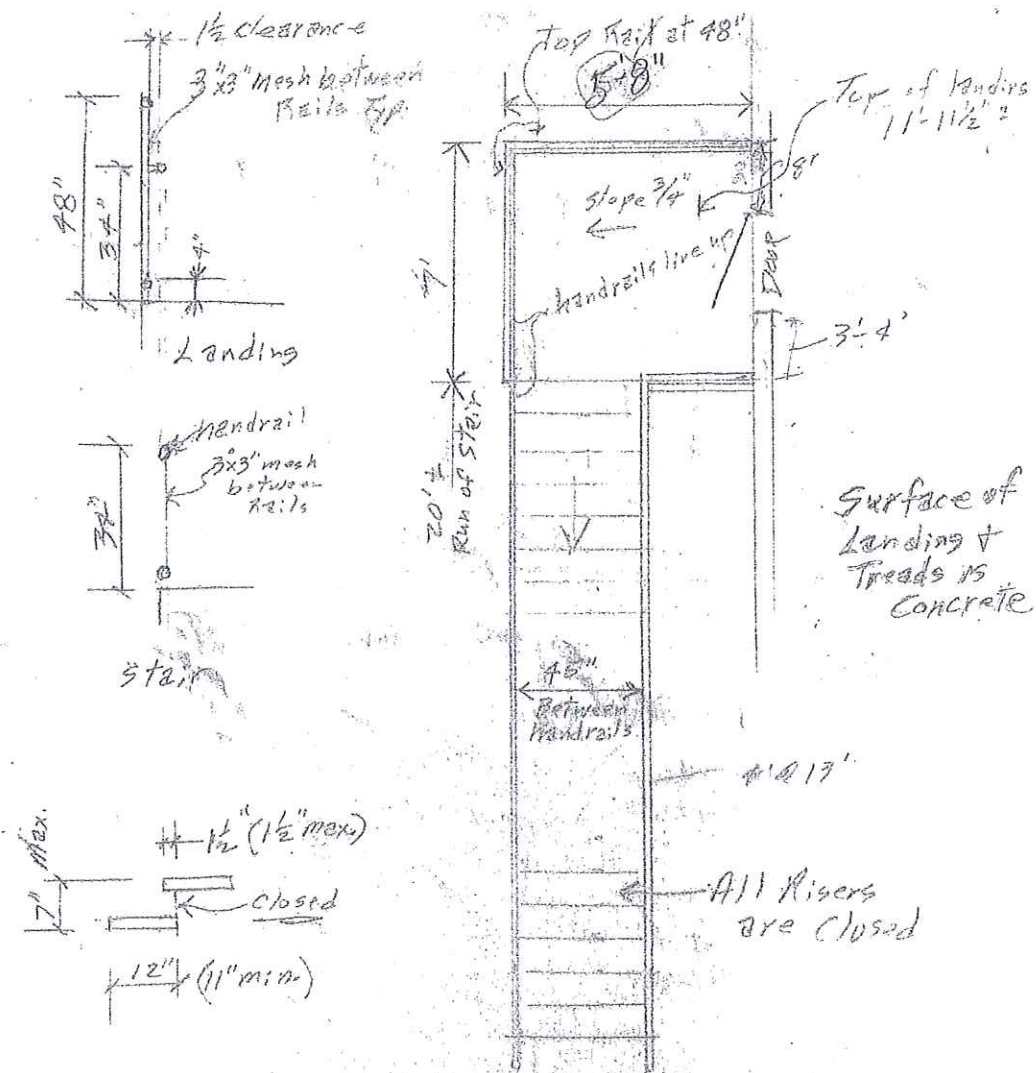 1½ clearance
3"x3" mesh between
Rails Typ.
48"
34"
4"
Landing
handrail
3"x3" mesh
between
Rails
34"
stair
7" max.
1½" (1½" max.)
closed
12" (11" min.)
Top Rail at 48"
5'-8"
Top of landing
11'-11½" ±
slope 3/4"
handrails line up
Door
3'-4"
20' ±
Run of Stair
45"
Between
handrails
Surface of
Landing +
Treads is
Concrete
All Risers
are Closed